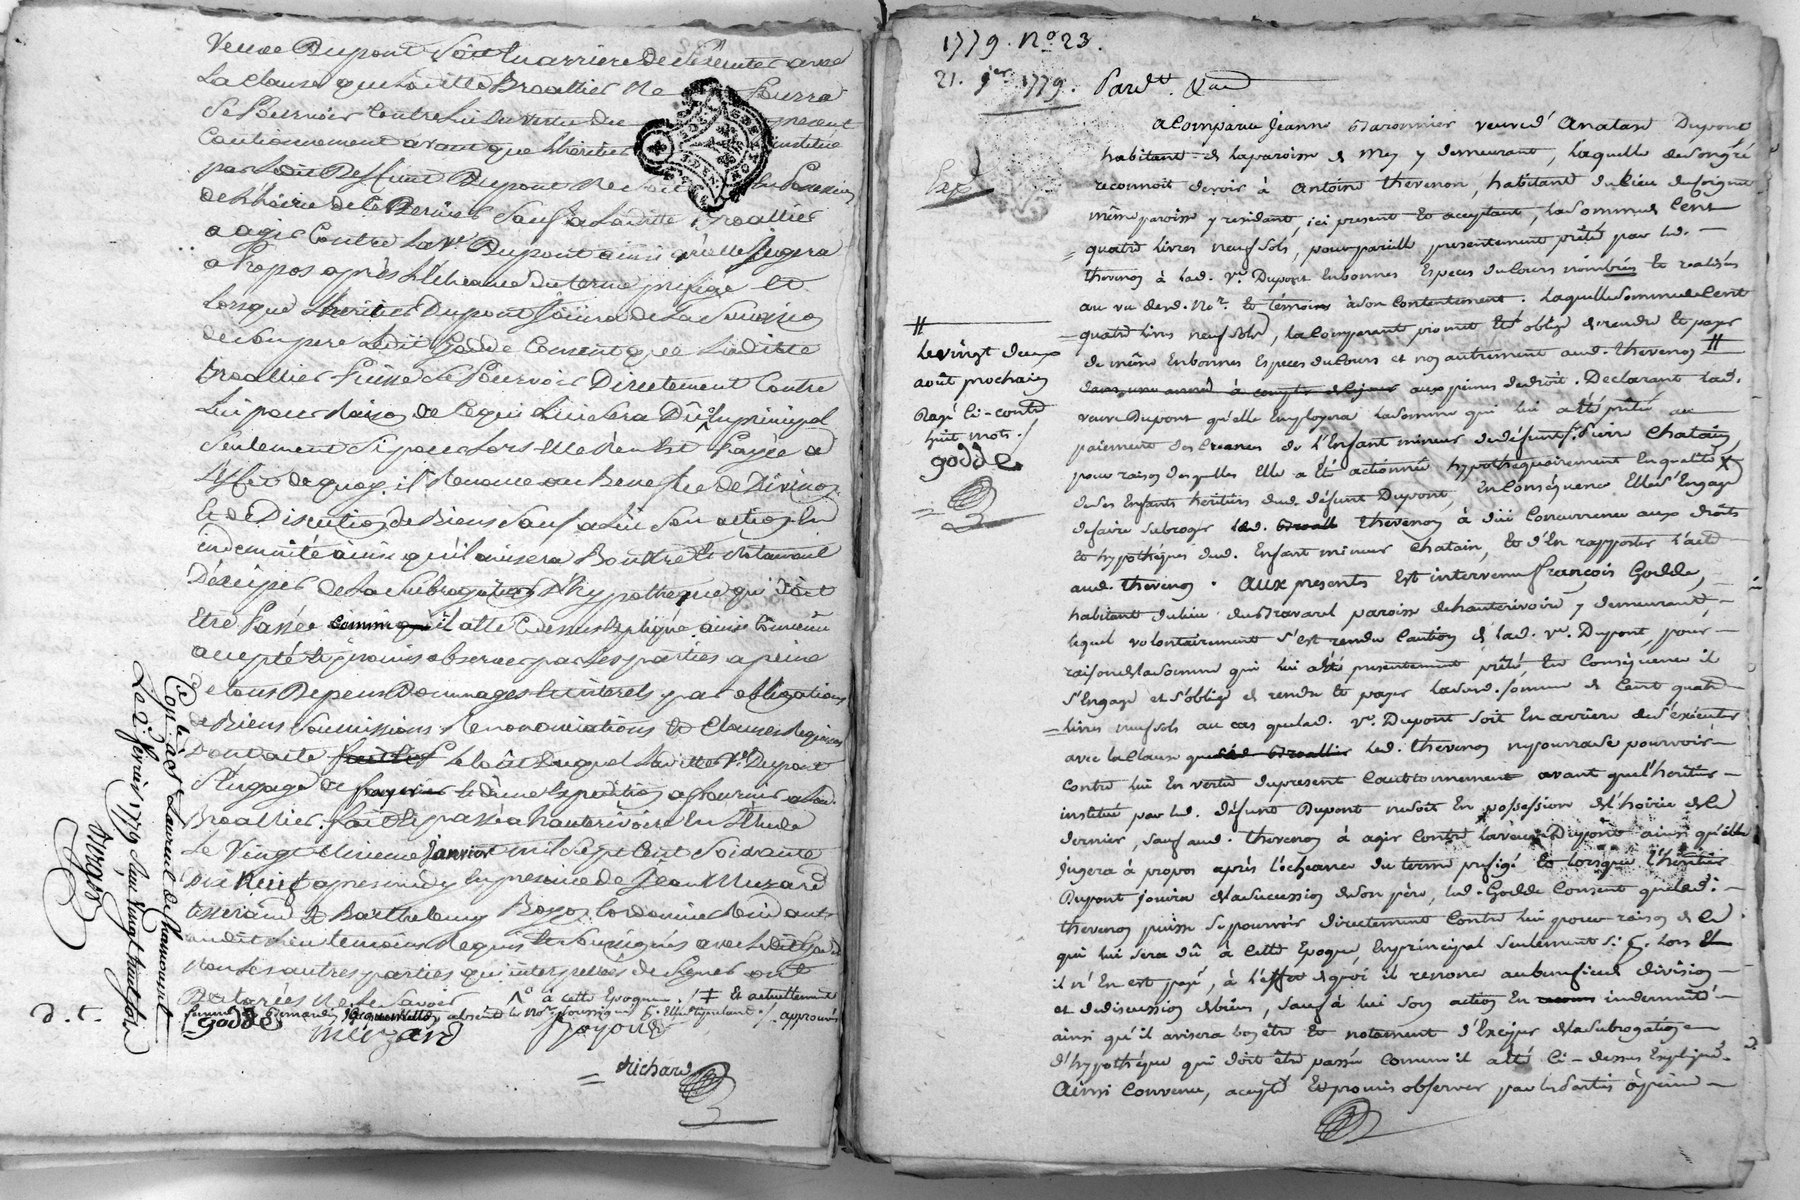 Veuve Dupont Soit En arriere de s'executer avec
La clause que laditte Broallier Ne Pourra
Se Pourvoir Contre lui En vertu du present
Cautionnement avant que L'heritier institué
par ledit Deffunt Dupont Ne Soit En Possession
de L'hoirie de Ce Dernier Sauf a laditte Broallier
a agir Contre La Ve. Dupont ainsi qu'elle Jugera
a Propos après L'Echeance du terme prefigé Et
Lorsque L'heritier Dupont Jouira de La Succession
de Son pere Ledit Godde Consent que Laditte
Broallier Puisse Se Pourvoir Directement Contre
Lui pour Raison de Ce qui Lui Sera Dû En principal
Seulement Si pour Lors Elle N'en Est Payée a
L'Effet de quoy il Renonce au Benefice de Division
Et de Discution de Biens Sauf a Lui Son action En
indemnité ainsi qu'il avisera Bon Etre Et Notament
D'Exiger de La Subrogation D'hypotheque qui Doit
Etre Passée comme il a été Cy dessus Expliqué ainsi Convenu
accepté Et promis observer par Les parties a peine
de tous Depens Dommages Et interets par obligations
de Biens Soumissions Renonciations Et Clauses Requises
Dont acte Le Coût Duquel Laditte Ve. Dupont
S'Engage de payer Et d'une Expedition a fournir a lad.
Broallier. fait Et passé a hauterivoire En L'Etude
Le Vingt Janvier mil Sept Cent Soixante
Dix Neuf apres midy En presence de Jean Muzard
tisserand Et Barthelemy Boyon Cordonnier Residants
audit Lieu temoins Requis Et Soussignés avec Ledit Godde
Non Les autres parties qui interpellées de Signer ont
Declarées Ne Le Savoir
^o à cette Epoque ./ ‡ Et actuellement
absent Le Nore. soussigné p. Elle stipulant ./ approuvés
godde
muzard
Boyon
Richard
Conlé. à St. Laurent de Chamousset
Le 2. fevrier 1779 Reçu vingt huit sols
Alvoger
d. C.
1779. No. 23.
21. Jer. 1779. Pardt. &ca
Exp.
a Comparu Jeanne Baronnier veuve d'Anatase Dupont
habitante de la paroisse de Mey y demeurant, laquelle de son gré
reconnoit devoir à Antoine Thevenon, habitant du lieu du Soignie
même paroisse y residant, ici present Et acceptant, la somme de Cent
quatre livres neuf sols, pour pareille presentement prêtée par led.
thevenon à lad. Ve. Dupont En bonnes Especes du Cours nombrées Et realisées
au vu dud. Nore. Et témoins à son Contentement. Laquelle somme de Cent
quatre livres neuf sols, la Comparante promet Et oblige de rendre Et payer
de même En bonnes Especes du Cours et non autrement aud. thevenon #
dans une année à compter de ce jour aux peines de droit. Declarant lad.
veuve Dupont qu'elle Employera la somme qui lui a été prêtée au
paiement des Creances de l'Enfant mineur du défunt S. Pierre Chatain,
pour raison desquelles Elle a été actionnée hypothequairement En qualité
de ses Enfants héritiers dud. défunt Dupont, En Conséquence Elle s'Engage
de faire subroger led. Broall thevenon à düe Concurrence aux droits
Et hypothéques dud. Enfant mineur Chatain, Et d'En rapporter l'acte
aud. thevenon. Aux presentes Est intervenu françois Godde,
habitant du lieu du Bravarel paroisse de hauterivoire y demeurant,
lequel volontairement s'est rendu Caution de lad. ve. Dupont, pour
raison de la somme qui lui a été presentement prêtée En Conséquence il
s'Engage et s'oblige de rendre Et payer la susd. somme de Cent quatre
livres neuf sols au cas que lad. ve. Dupont soit En arriere de s'exécuter
avec la Clause que lad. Broallier led. thevenon ne pourra se pourvoir
Contre lui En vertu du present Cautionnement avant que l'heritier
institué par led. défunt Dupont ne soit En possession de l'hoirie de Ce
dernier, sauf aud. thevenon à agir Contre la veuve Dupont ainsi qu'il
Jugera à propos après l'écheance du terme prefigé Et lorsque l'héritier
Dupont jouira de la succession de son père, led. Godde Consent que led.
thevenon puisse se pourvoir directement Contre lui pour raison de Ce
qui lui sera dû à Cette Epoque, En principal seulement si p. lors Et
il n'En est payé, à l'effet de quoi il renonce au benefice de division
et de discussion de biens, sauf à lui son action En indemnité
ainsi qu'il avisera bon être Et notament d'Exiger de la subrogation
d'hypothéque qui doit être passée Comme il a été Ci-dessus Expliqué.
Ainsi Convenu, accepté Et promis observer par les Parties à peine
#
Le vingt deux
août prochain
Rayé Ci-contre
huit mots ./
godde